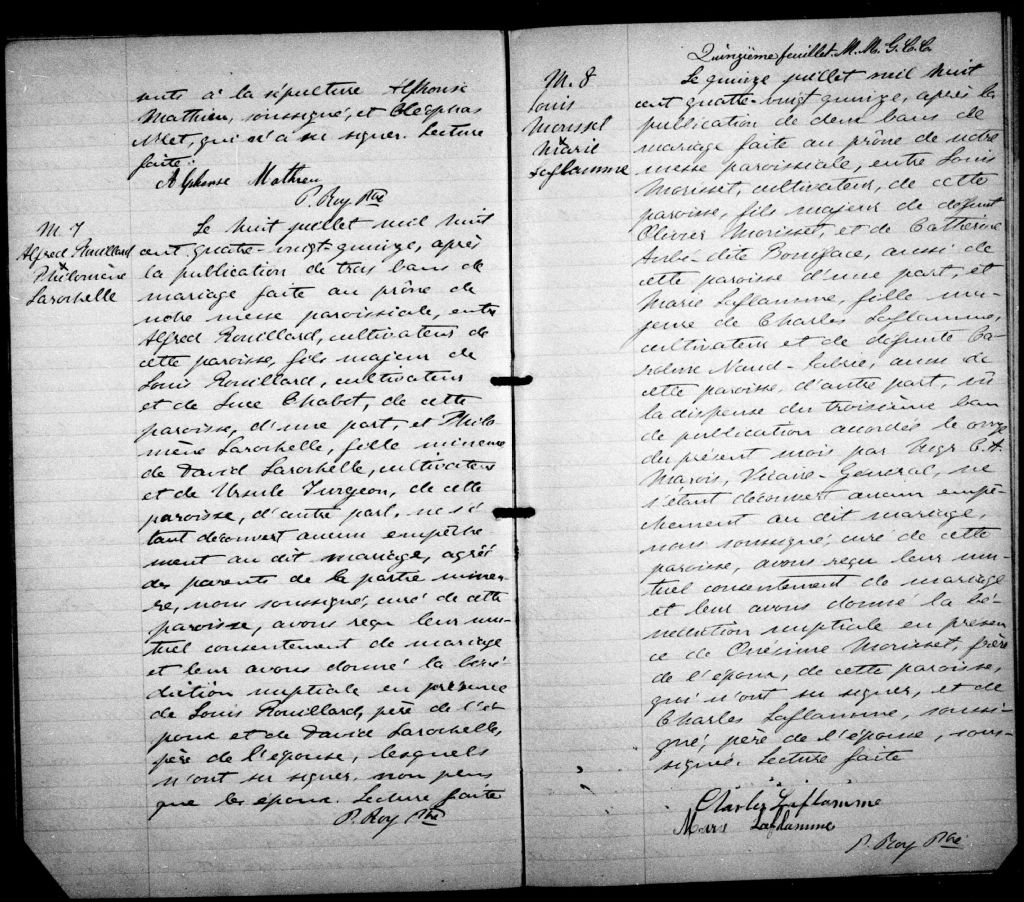 sents à la sépulture Alphonse
Mathieu, soussigné, et Cléophas
qui n'a su signer. Lecture
faite.
Alphonse Mathieu
P. Roy Ptre
M. 7
Alfred Rouillard
x
Philomène
Larochelle
Le huit juillet mil huit
cent quatre-vingt quinze, après
la publication de trois bans de
mariage faite au prône de
notre messe paroissiale, entre
Alfred Rouillard, cultivateur de
cette paroisse, fils majeur de
Louis Rouillard, cultivateur
et de Luce Chabot, de cette
paroisse, d'une part, et Philo
mène Larochelle, fille mineure
de David Larochelle, cultivateur
et de Ursule Turgeon, de cette
paroisse, d'autre part, ne s'é
tant découvert aucun empêche
ment au dit mariage, agréé
des parents de la partie mineu-
re, nous soussigné, curé de cette
paroisse, avons reçu leur mu-
tuel consentement de mariage
et leur avons donné la béné
diction nuptiale en présence
de Louis Rouillard, père de l'é-
poux et de David Larochelle,
père de l'épouse, lesquels
n'ont su signer, non plus
que les époux. Lecture faite
P. Roy Ptre
Quinzième feuillet. M. M. G. C. C.
M. 8
Louis
Morisset
x
Marie
Laflamme
Le quinze juillet mil huit
cent quatre-vingt quinze, après la
publication de deux bans de
mariage faite au prône de notre
messe paroissiale, entre Louis
Morisset, cultivateur, de cette
paroisse, fils majeur de défunt
Olivier Morisset, et de Catherine
dite Boniface, aussi de
cette paroisse d'une part, et
Marie Laflamme, fille ma-
jeure de Charles Laflamme,
cultivateur et de défunte Ca-
roline Naud-Labrie, aussi de
cette paroisse, d'autre part, vu
la dispense du troisième ban
de publication accordée le onze
du présent mois par Mgr C. A.
Marois, Vicaire-Général, ne
s'étant découvert aucun empê-
chement au dit mariage,
nous soussigné, curé de cette
paroisse, avons reçu leur mu-
tuel consentement de mariage
et leur avons donné la bé-
nédiction nuptiale en présen
ce de Onésime Morisset, frère
de l'époux, de cette paroisse,
qui n'ont su signer, et de
Charles Laflamme, soussi-
gné, père de l'épouse, sous-
signée. Lecture faite
Charles Laflamme
Laflamme
P. Roy Ptre